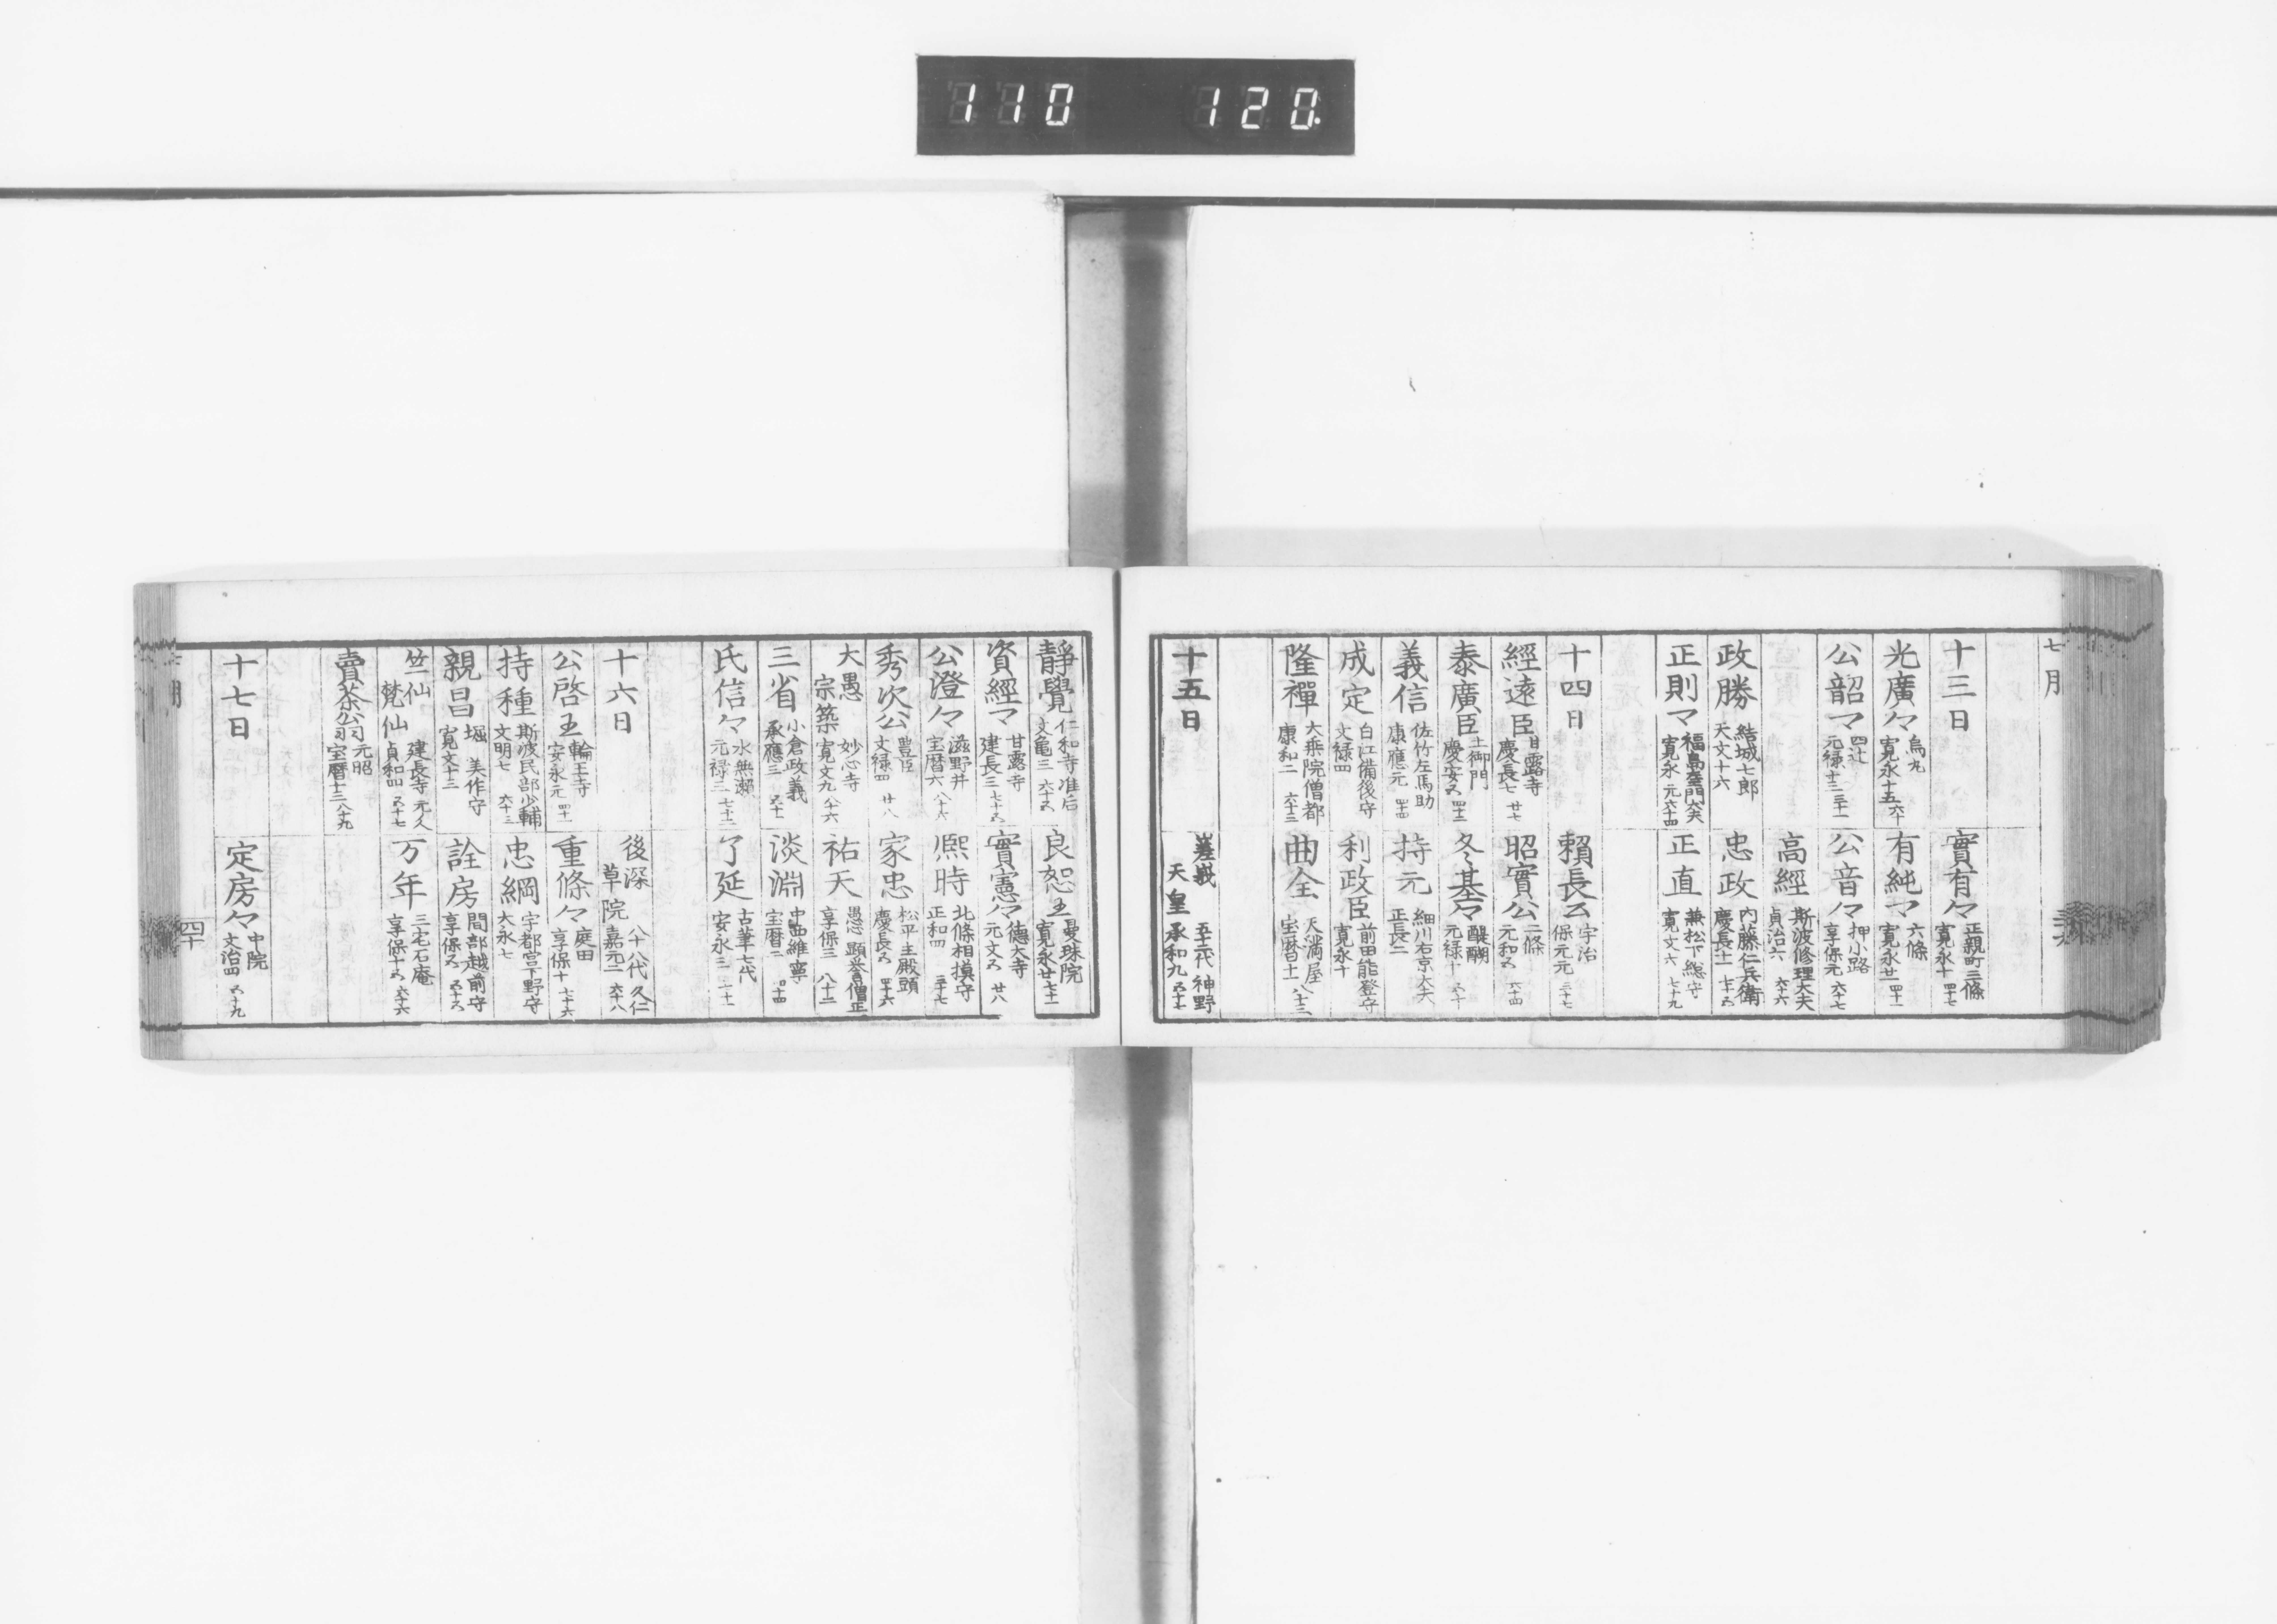 110 120.
七月
十三日
實有々 正親町三條 寛永十 四十七
光廣々 烏丸 寛永十五 六十
有純マ 六條 寛永廿一 四十一
公韶マ 四辻 元禄十三 三十一
公音々 押小路 享保元 六十七
高經 斯波修理大夫 貞治六 六十六
政勝 結城七郎 天文十六
忠政 内藤仁兵衛 慶長十一
正則マ 福島 寛永元 六十四
正直 兼松下総守 寛文六 七十九
十四日
頼長公 宇治 保元元 三十七
經遠臣 甘露寺 慶長七 廿七
昭實公 二條 元和五 六十四
泰廣臣 土御門 慶安五 四十二
冬基々 醍醐 元禄十 五十
義信 佐竹左馬助 康應元 四十四
持元 細川右京大夫 正長二
成定 白江備後守 文禄四
利政臣 前田能登守 寛永十
隆禪 大乗院僧都 康和二 六十三
曲全 天満屋 宝暦十一 八十三
十五日
嵯峨天皇 五十二代 神野 承和九 五十七
靜覺 仁和寺准后 文亀三 六十五
良恕王 曼珠院 寛永廿 七十一
資經マ 甘露寺 建長三 七十五
實憲々 徳大寺 元文五 廿八
公澄々 滋野井 宝暦六 八十六
熈時 北條相摸守 正和四 三十七
秀次公 豊臣 文禄四 廿八
家忠 松平主殿頭 慶長五 四十六
大愚宗築 妙心寺 寛文九 八十六
祐天 愚心 顕誉僧正 享保三 八十二
三省 小倉政義 承應三 五十一
淡淵 中西維寧 宝暦二 四十四
氏信々 水無瀬 元禄三 七十二
了延 古筆七代 安永三 七十一
十六日
後深草院 八十八代 久仁 嘉元二 六十八
公啓王 輪王寺 安永元 四十一
重條々 庭田 享保十 七十六
持種 斯波民部少輔 文明七 六十三
忠綱 宇都宮下野守 大永七
親昌 堀美作守 寛文十三
詮房 間部越前守 享保五 五十五
竺仙梵仙 建長寺 元人 貞和四 五十七
万年 三宅石庵 享保十五 六十六
賣茶翁 元昭 宝暦十三 八十九
十七日
定房々 中院 文治四 五十九
四十